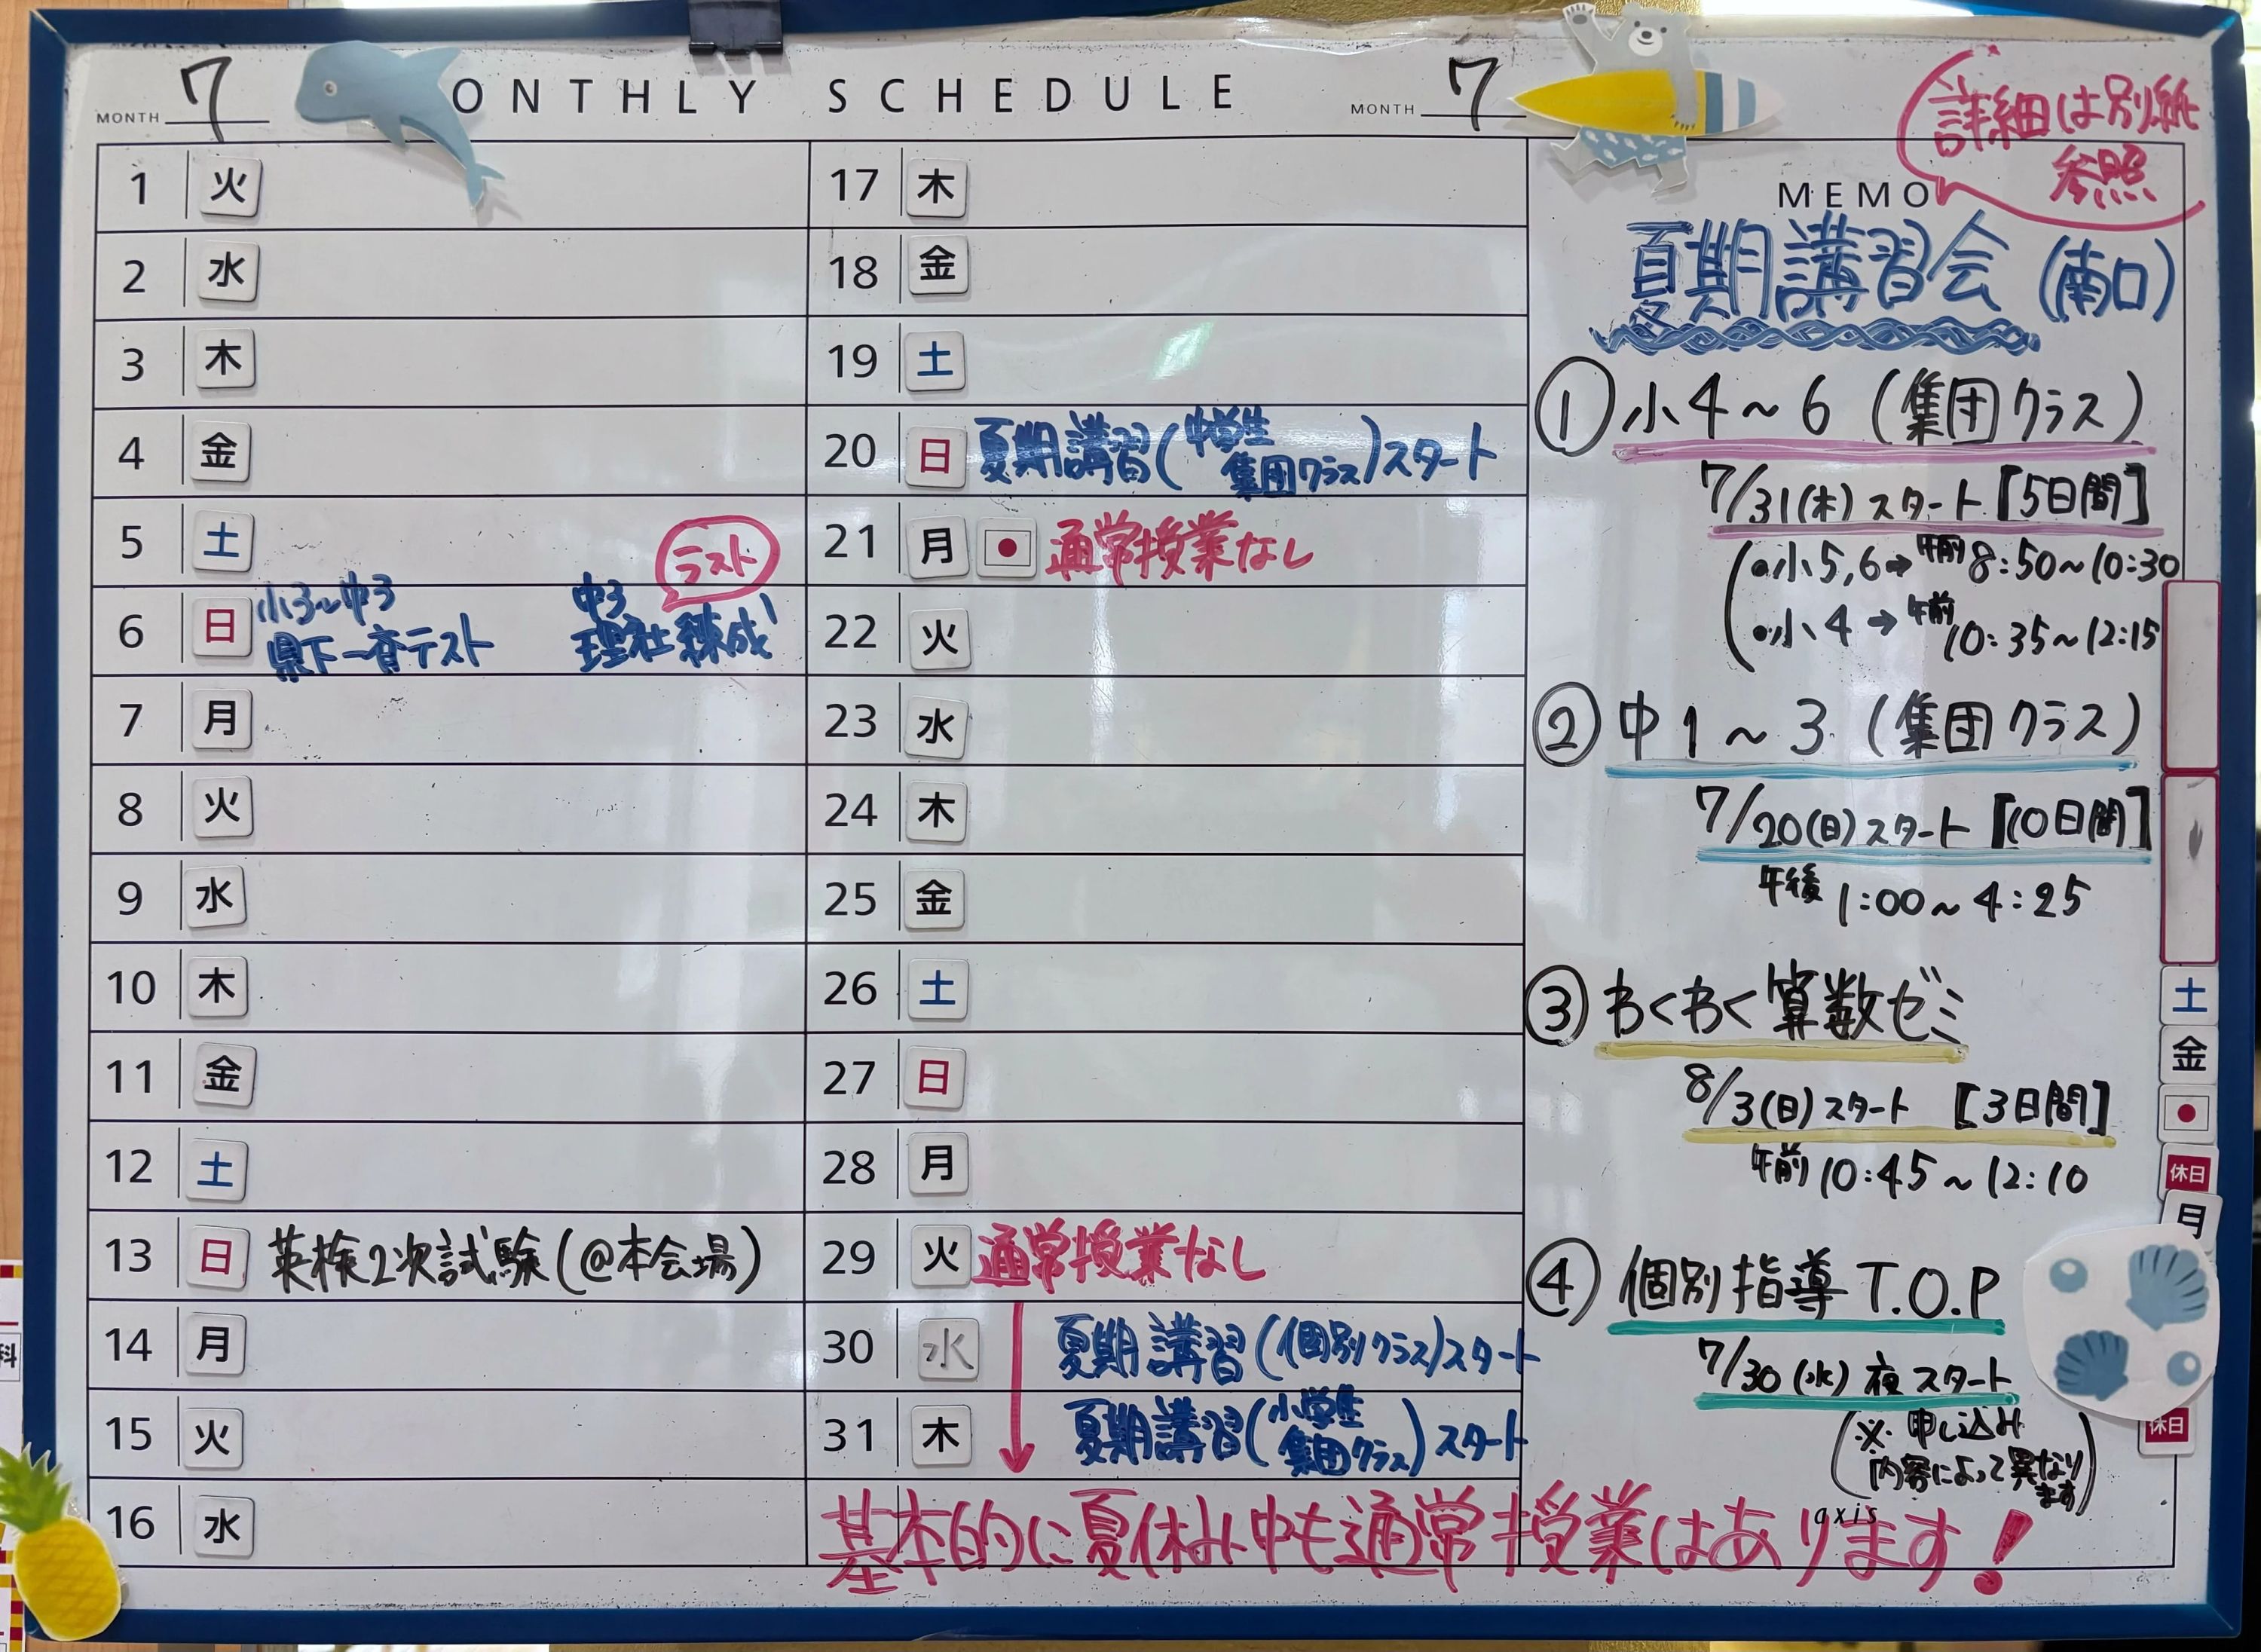 MONTH 7
ONTHLY SCHEDULE
MONTH 7
1 火
2 水
3 木
4 金
5 土
6 日 小3~中3 県下一斉テスト 中3 理社錬成 ラスト
7 月
8 火
9 水
10 木
11 金
12 土
13 日 英検2次試験(@本会場)
14 月
15 火
16 水
17 木
18 金
19 土
20 日 夏期講習(中学生集団クラス)スタート
21 月 通常授業なし
22 火
23 水
24 木
25 金
26 土
27 日
28 月
29 火 通常授業なし
30 水 夏期講習(個別クラス)スタート
31 木 夏期講習(小学生集団クラス)スタート
基本的に夏休み中も通常授業はあります!
詳細は別紙
参照
MEMO
夏期講習会(南口)
① 小4~6(集団クラス)
7/31(木)スタート[5日間]
•小5,6→午前8:50~10:30
•小4→午前10:35~12:15
② 中1~3(集団クラス)
7/20(日)スタート[10日間]
午後1:00~4:25
③ わくわく算数ゼミ
8/3(日)スタート[3日間]
午前10:45~12:10
④ 個別指導T.O.P
7/30(水)夜スタート
(※申し込み
内容によって異なり
ます)
axis
土
金
休日
月
休日
科